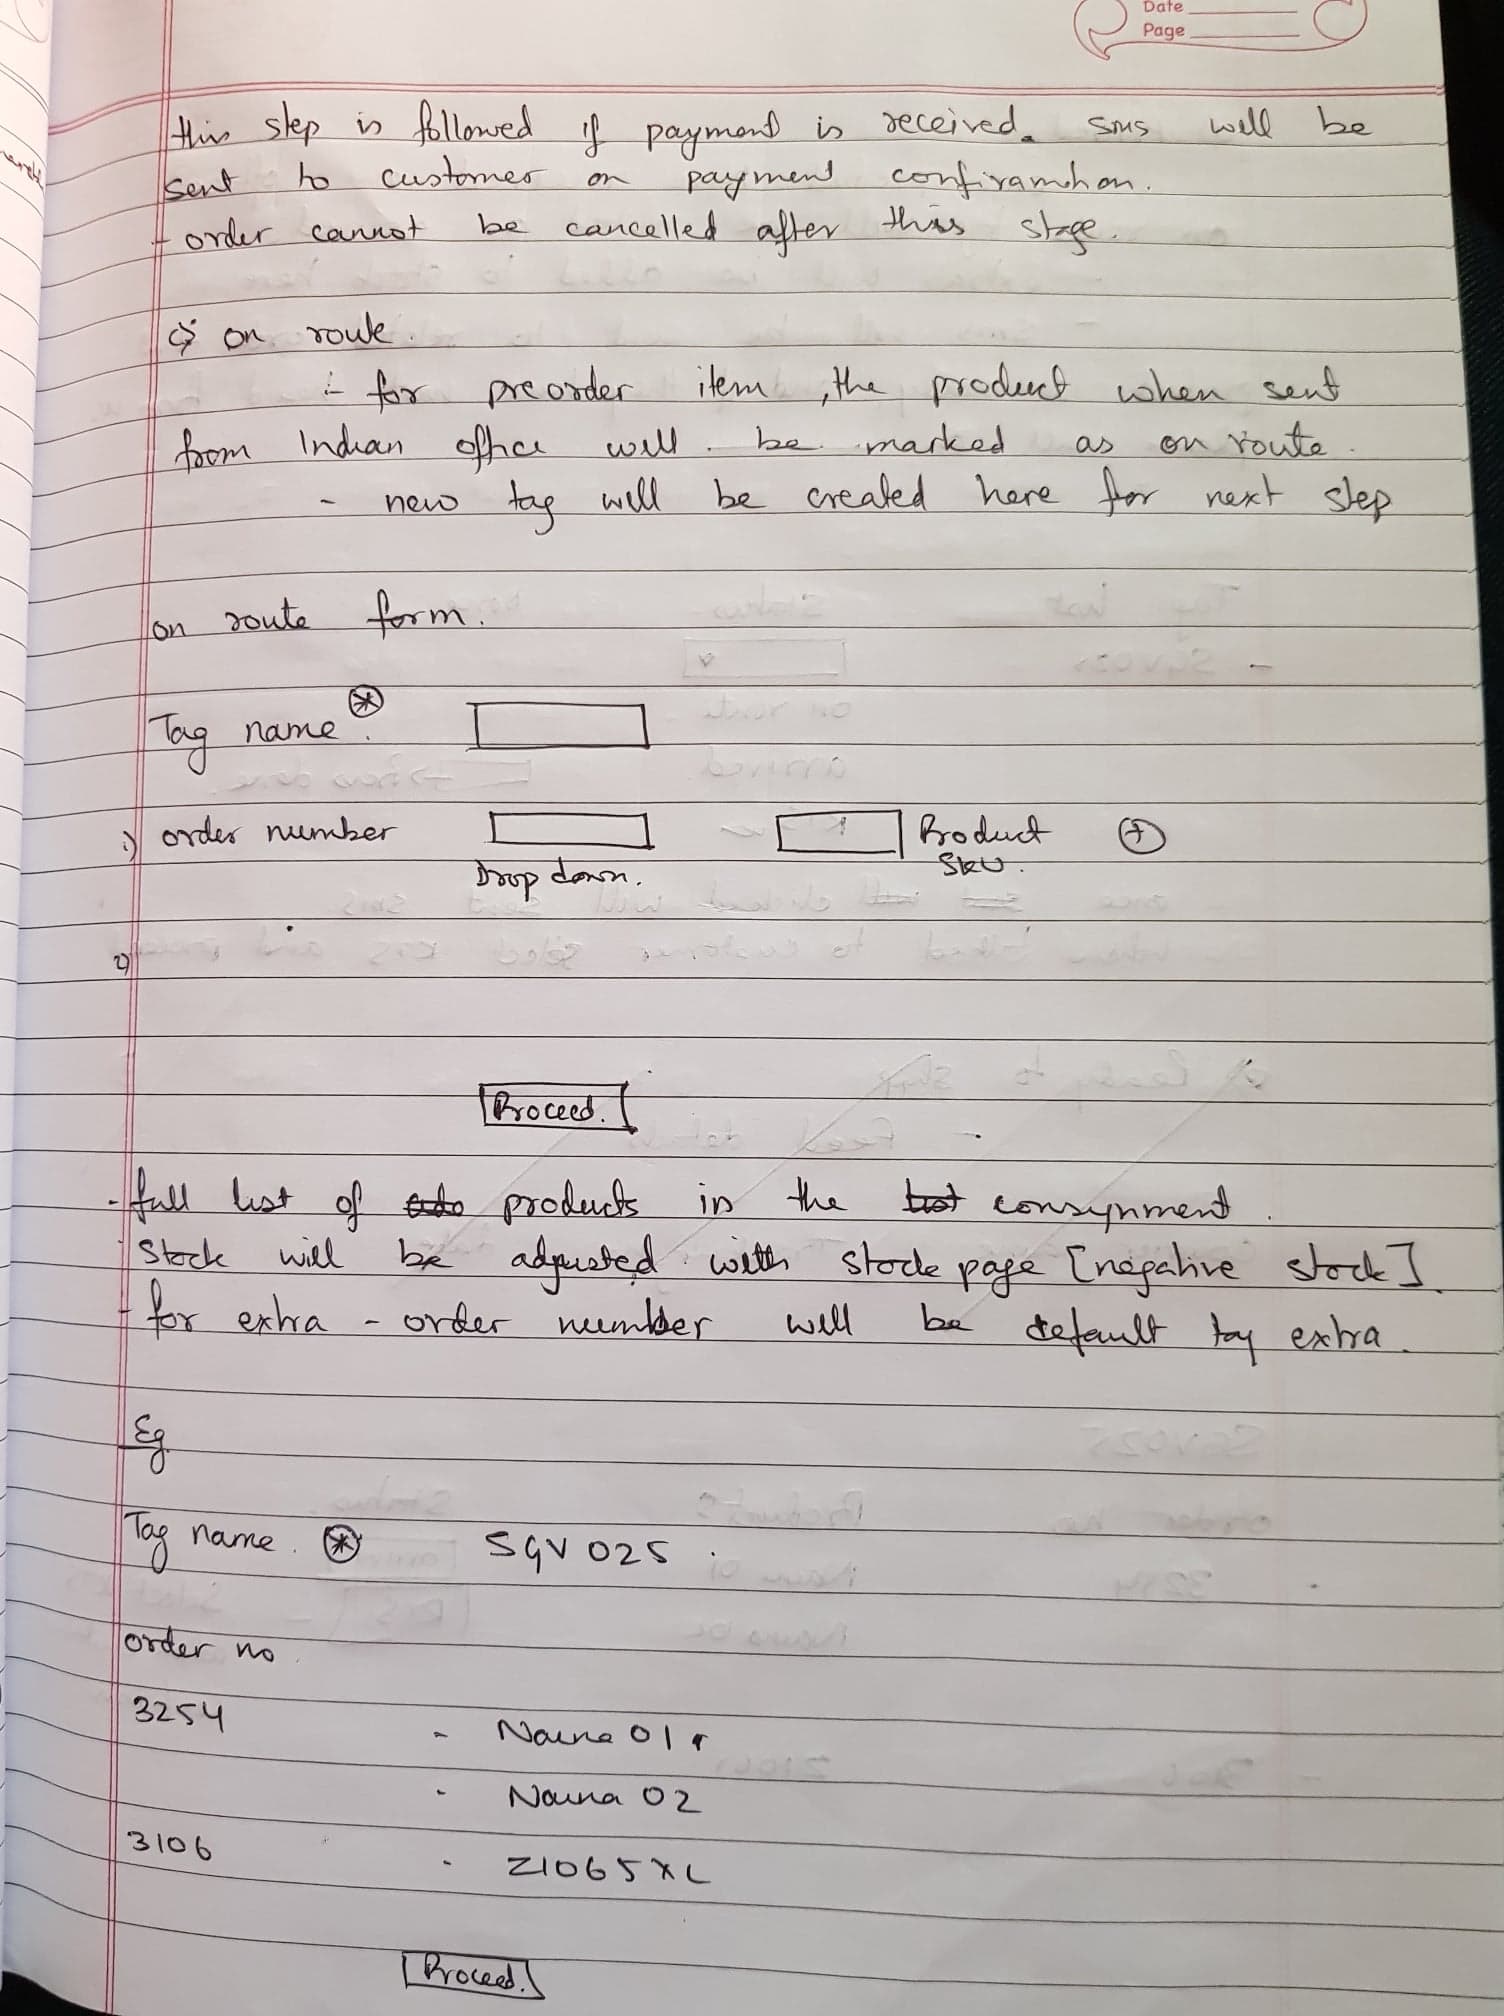 Date
Page
this step is followed if payment is received. sms will be
sent to customer on payment confiramtion.
- order cannot be cancelled after this stage.
on route.
- for preorder item, the product when sent
from Indian office will be marked as on route.
- new tag will be created here for next step
on route form.
Tag name *
1) order number Product +
Drop down. SKU.
2)
Proceed.
- full list of products in the consignment.
Stock will be adjusted with stock page [negative stock]
- for extra - order number will be default tag extra.
Eg
Tag name. * SGV 025.
order no.
3254 - Naina 01
- Naina 02
3106 - Z1065XL
Proceed.